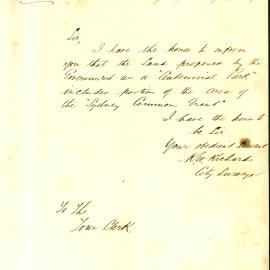 Sir,
I have the honor to inform
you that the Land proposed by the
Government as a "Centennial Park"
includes portion of the area of
the "Sydney Common Grant"
I have the honor to
be Sir
Your obedient Servant
R. W. Richards
City Surveyor
To The
Town Clerk